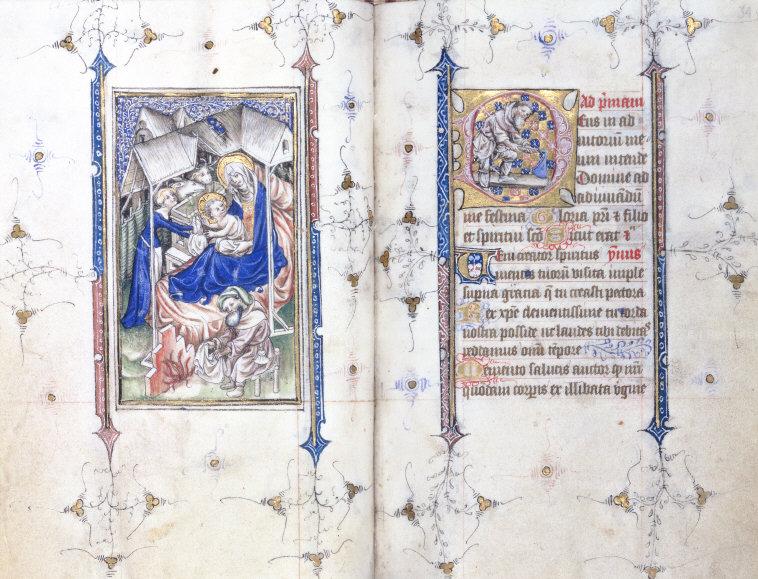 34
Ad primam
Eus in ad
iutorium me
um intende
Domine ad
adiuuandum
me festina Gloria pri & filio
et spiritui sco Sicut erat &
Ueni creator spiritus ymnus
mentes tuorum visita imple
superna gratia q tu creasti pectora
Et xpe clementissime tu corda
nostra posside ut laudes tibi debitas
reddamus omni tempore
Memento salutis auctor q nri
quondam corporis ex illibata virgine